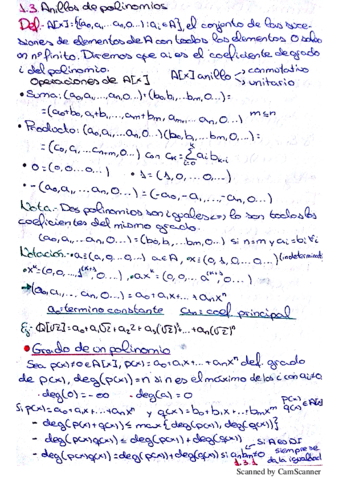 1.3. Anillos de polinomios
Def.- A[x]={(a₀,a₁,... aₙ,0...):aᵢ∈A}, el conjunto de las suce-
siones de elementos de A con todos los elementos 0 salvo
un nº finito. Diremos que aᵢ es el coeficiente de grado
i del polinomio.
Operaciones de A[x] A[x] anillo conmutativo
unitario
• Suma: (a₀,a₁,...aₙ,0...)+(b₀,b₁,...bₘ,0...)=
=(a₀+b₀,a₁+b₁,...,aₘ+bₘ,...aₙ,0...) m≤n
• Producto: (a₀,a₁,...aₙ,0...)(b₀,b₁,...bₘ,0...)=
=(c₀,c₁,...cₙ₊ₘ,0...) con cₖ=∑aᵢbₖ₋ᵢ
• 0=(0,0...0...) • 1=(1,0,...0...)
• -(a₀,a₁,...aₙ,0...)=(-a₀,-a₁,...,-aₙ,0...)
Nota.- Dos polinomios son iguales<=> lo son todos los
coeficientes del mismo grado.
(a₀,a₁...aₙ,0...)=(b₀,b₁,...bₘ,0...) si n=m y aᵢ=bᵢ ∀i
Notación.- a=(a,0,...0...) a∈A, x=(0,1,0,...0...)
→(a₀,a₁,..., aₙ,0...)=a₀+a₁x+...+aₙxⁿ
a₀=término constante aₙ=coef. principal
• Grado de un polinomio
Sea p(x)≠0∈A[x], p(x)=a₀+a₁x+...+aₙxⁿ def. grado
de p(x), deg(p(x))=n si n es el máximo de los i con aᵢ≠0
·deg(0)=-∞ ·deg(a)=0
Si p(x)=a₀+a₁x+...+aₙxⁿ y q(x)=b₀+b₁x+...+bₘxᵐ p(x) q(x)∈A[x]
- deg(p(x)+q(x))≤max{deg(p(x)),deg(q(x))}
- deg(p(x)q(x))≤deg(p(x))+deg(q(x))
- deg(p(x)q(x))=deg(p(x))+deg(q(x)) si aₙbₘ≠0
Si A es DI
siempre se
da la igualdad
1.3.1
Scanned by CamScanner